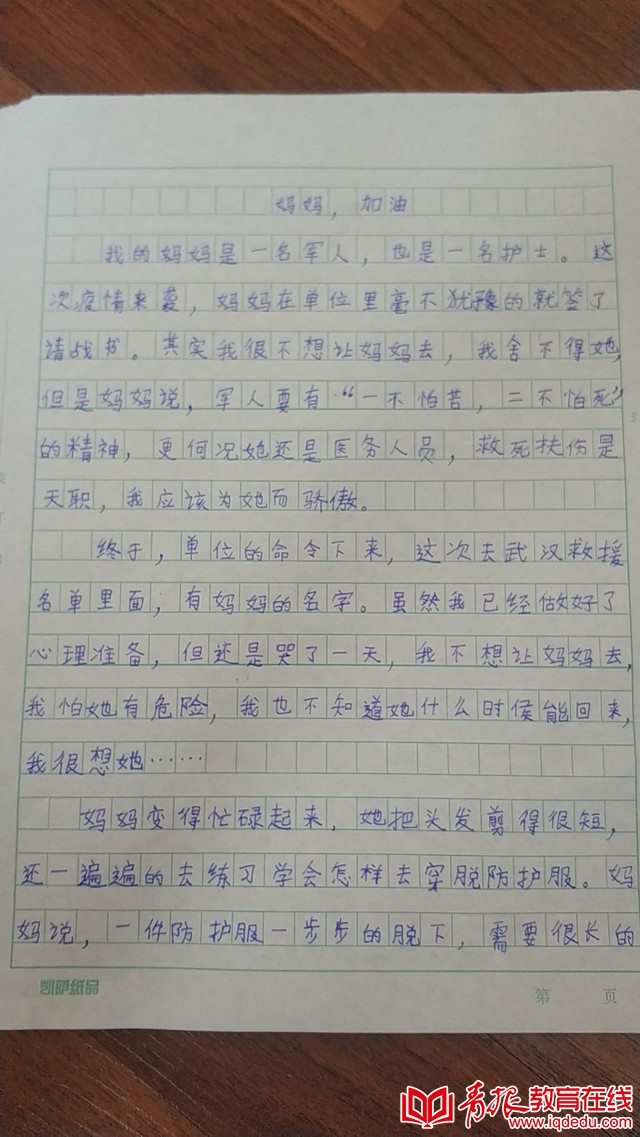 妈妈，加油
我的妈妈是一名军人，也是一名护士。这
次疫情来袭，妈妈在单位里毫不犹豫的就签了
请战书。其实我很不想让妈妈去，我舍不得她，
但是妈妈说，军人要有“一不怕苦，二不怕死”
的精神，更何况她还是医务人员，救死扶伤是
天职，我应该为她而骄傲。
终于，单位的命令下来，这次去武汉救援
名单里面，有妈妈的名字。虽然我已经做好了
心理准备，但还是哭了一天，我不想让妈妈去，
我怕她有危险，我也不知道她什么时侯能回来，
我很想她……
妈妈变得忙碌起来，她把头发剪得很短，
还一遍遍的去练习学会怎样去穿脱防护服。妈
妈说，一件防护服一步步的脱下，需要很长的
凯萨纸品
第 页
青报教育在线
www.iqdedu.com